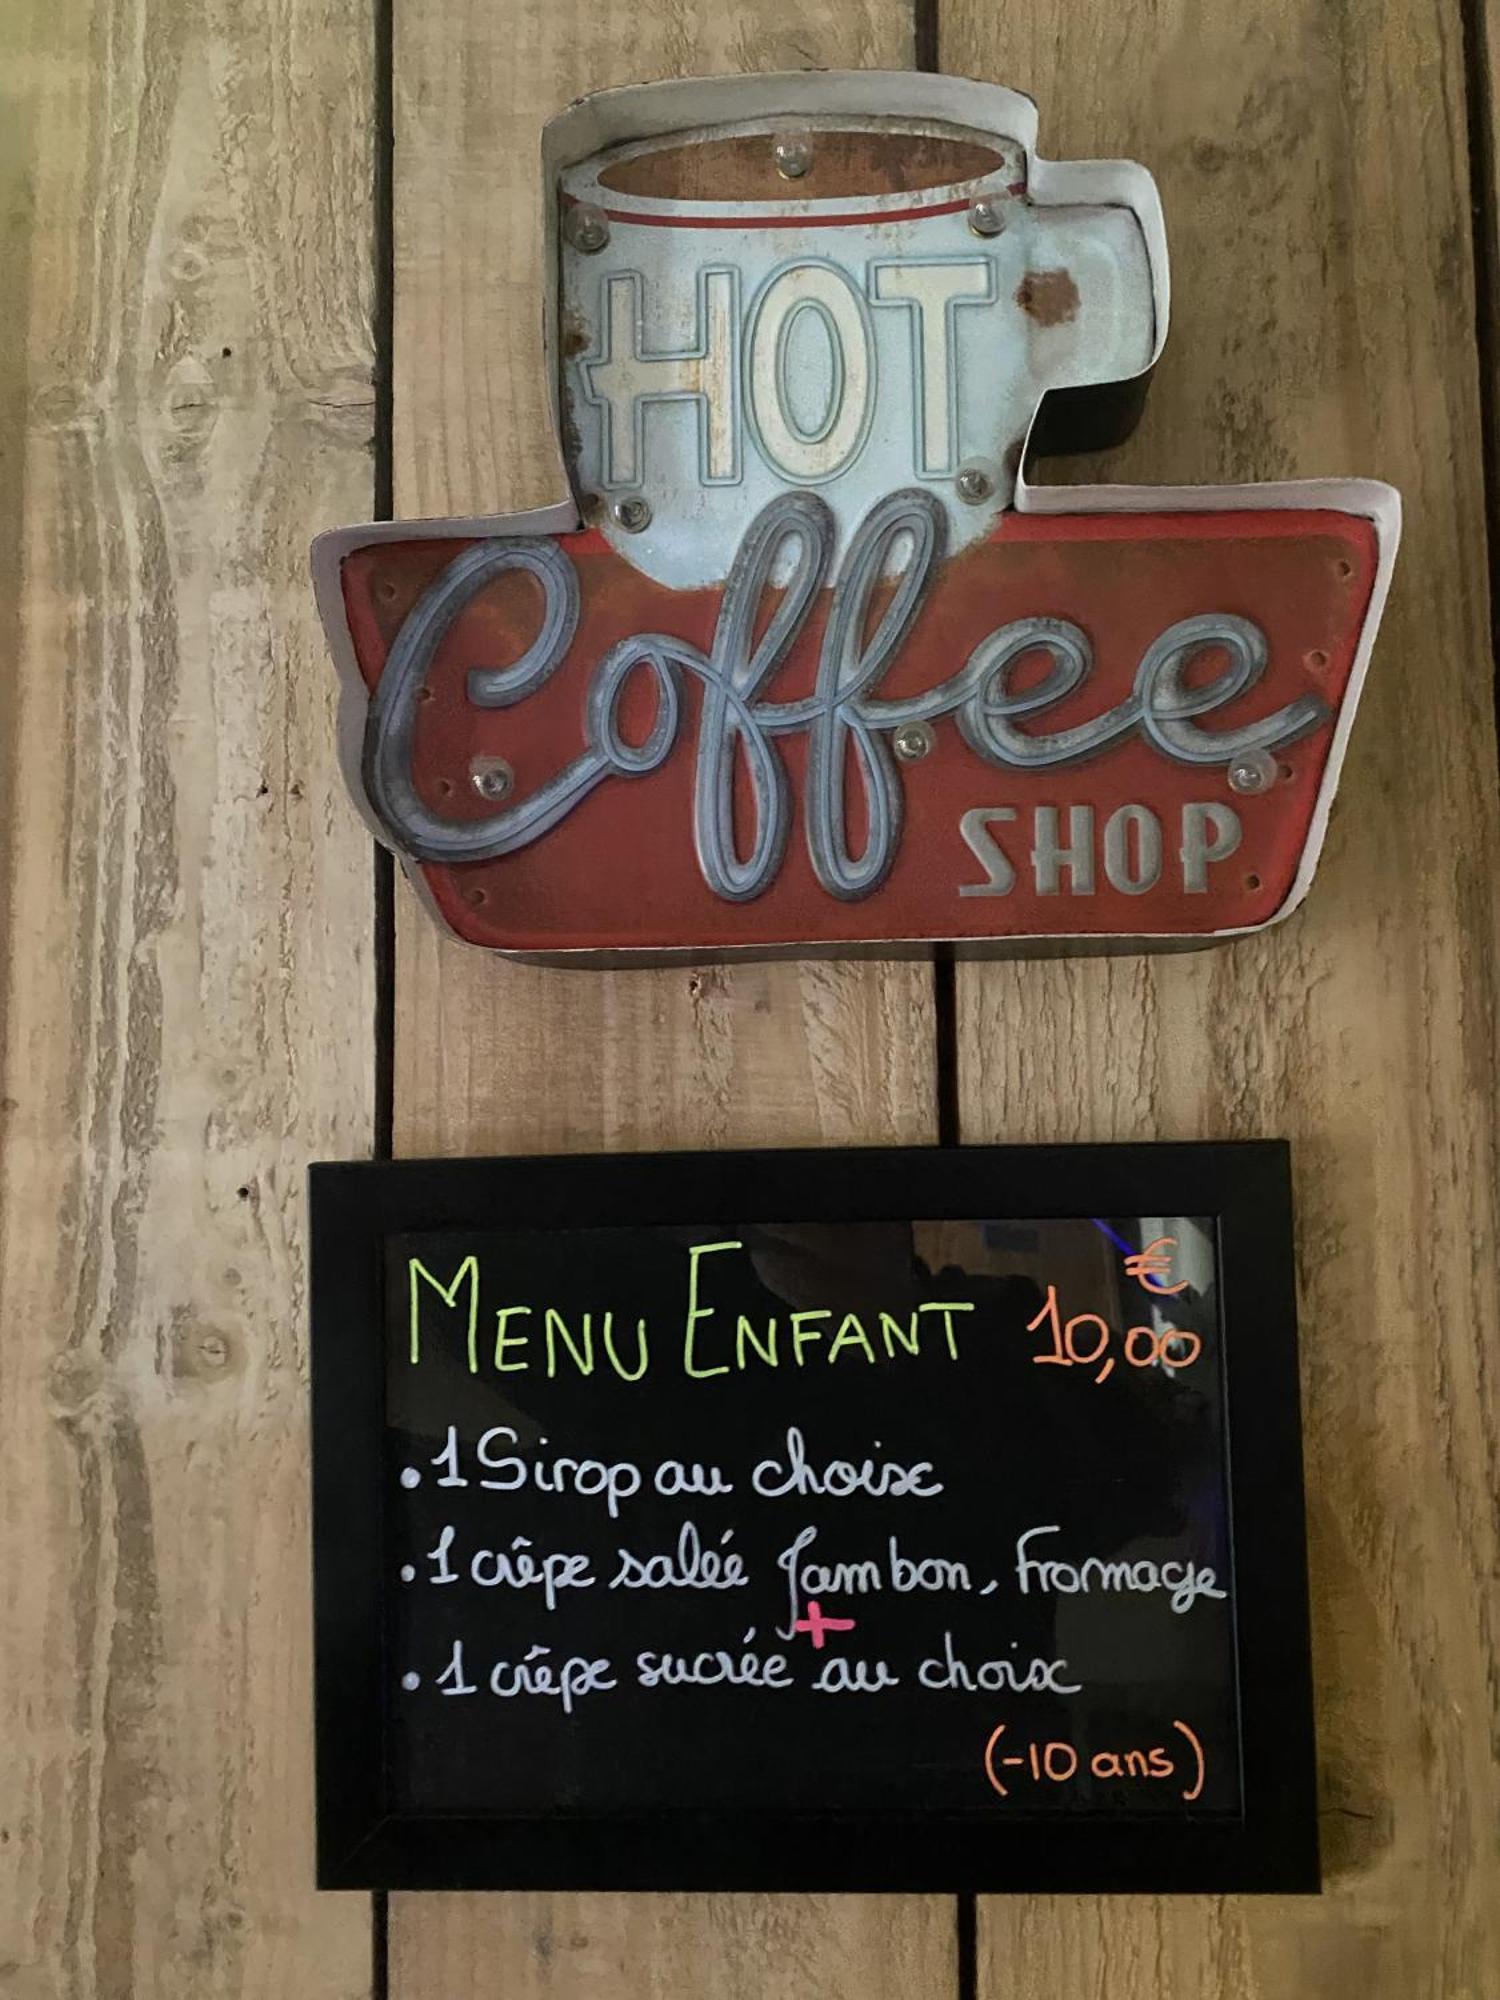 HOT
Coffee
SHOP
MENU ENFANT 10,00 €
• 1 Sirop au choix
• 1 crêpe salée Jambon, Fromage
+
• 1 crêpe sucrée au choix
(-10 ans)